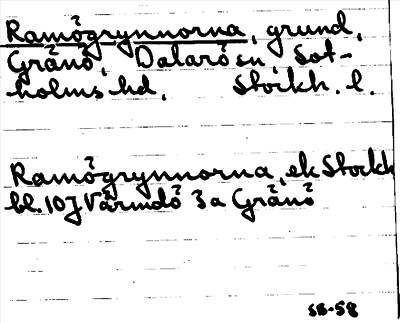 Ramögrynnorna, grund,
Gränö, Dalarö sn Sot-
holms hd, Stockh. l.
Ramögrynnorna, ek Stockh
bl. 10J Värmdö 3a Gränö
SB-58